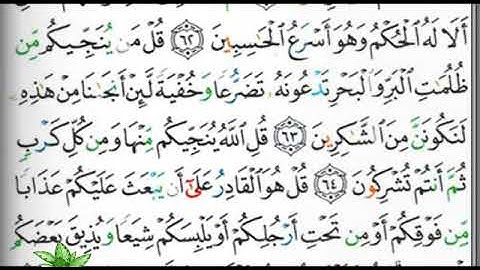 أَلَا لَهُ الْحُكْمُ وَهُوَ أَسْرَعُ الْحَاسِبِينَ ﴿٦٢﴾ قُلْ مَن يُنَجِّيكُم مِّن
ظُلُمَاتِ الْبَرِّ وَالْبَحْرِ تَدْعُونَهُ تَضَرُّعًا وَخُفْيَةً لَّئِنْ أَنجَانَا مِنْ هَٰذِهِ
لَنَكُونَنَّ مِنَ الشَّاكِرِينَ ﴿٦٣﴾ قُلِ اللَّهُ يُنَجِّيكُم مِّنْهَا وَمِن كُلِّ كَرْبٍ
ثُمَّ أَنتُمْ تُشْرِكُونَ ﴿٦٤﴾ قُلْ هُوَ الْقَادِرُ عَلَىٰ أَن يَبْعَثَ عَلَيْكُمْ عَذَابًا
مِّن فَوْقِكُمْ أَوْ مِن تَحْتِ أَرْجُلِكُمْ أَوْ يَلْبِسَكُمْ شِيَعًا وَيُذِيقَ بَعْضَكُم